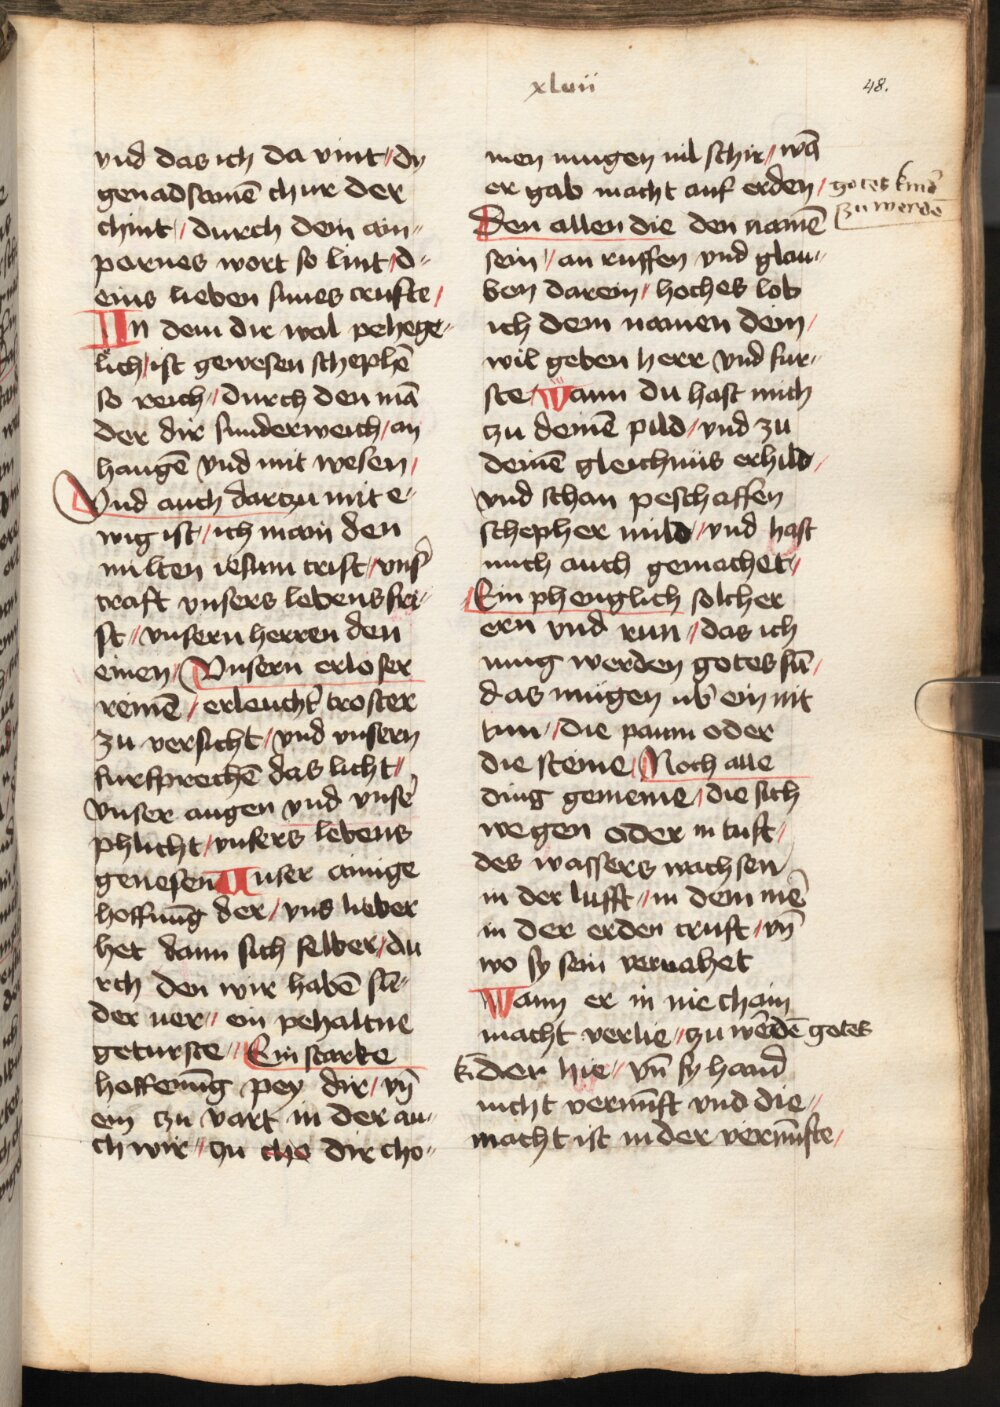 xlvii
48.
vnd das ich da vint // dy
genadsamē chur der
chint // durch dem ain //
parnes wort so lint / d //
eins lieben sunes crufte /
In dem dir wol pehege //
lich / ist gewesen schephē
so reich / durch den mā
der dir sunderweich / an
hangē vnd mit wesen /
Vnd auch dartzu mit e //
wig ist / ich main den
milten iesum crist / vnsr̄
craft vnsers lebens fri //
st // vnsern herren den
einen / Vnsern erloser
reinē / erleucht̄ troster
zu versicht / vnd vnsern
fursprechē das licht /
vnser augen vnd vnsr̄
phlicht / vnsers lebens
genesen Unser ainige
hoffnūg der / vns lieber
het dann sich selber / du
rch den wir habē sūn //
der uer // ein pehaltne
geturste // Ein starke
hoffenūg pey dir / vn̄
ein zu vart in der au //
ch wir // zu che dir cho //
men mugen nil schir // wā
er gab macht auf erden / gotes kind̄
zu werdē
Den allen die den namē
sein // an ruffen vnd glau //
ben darein / hoches lob
ich dem namen dem /
wil geben herr vnd fur //
ste / Wann du hast mich
zu deinē pild / vnd zu
deinē gleichnus erhild /
vnd schan peschaffen
schepher mild / vnd hast
mich auch gemachet /
Einphenglich solcher
ern vnd run // das ich
mug werden gotes sū /
das mügen ub̄ ein nit
tun // die paum oder
die steine / Noch alle
ding gemeine / die sich
wegen oder in tuft /
des wassers wachsen
in der lufft // in dem mē
in der erden cruft // vn̄
wo sy sein vernahet
Wann er in nie chain
macht verlie // zu wēdē gotes
kīder hie // vn̄ sy hand̄
nicht vernūft vnd die //
macht ist in der vernūfte /